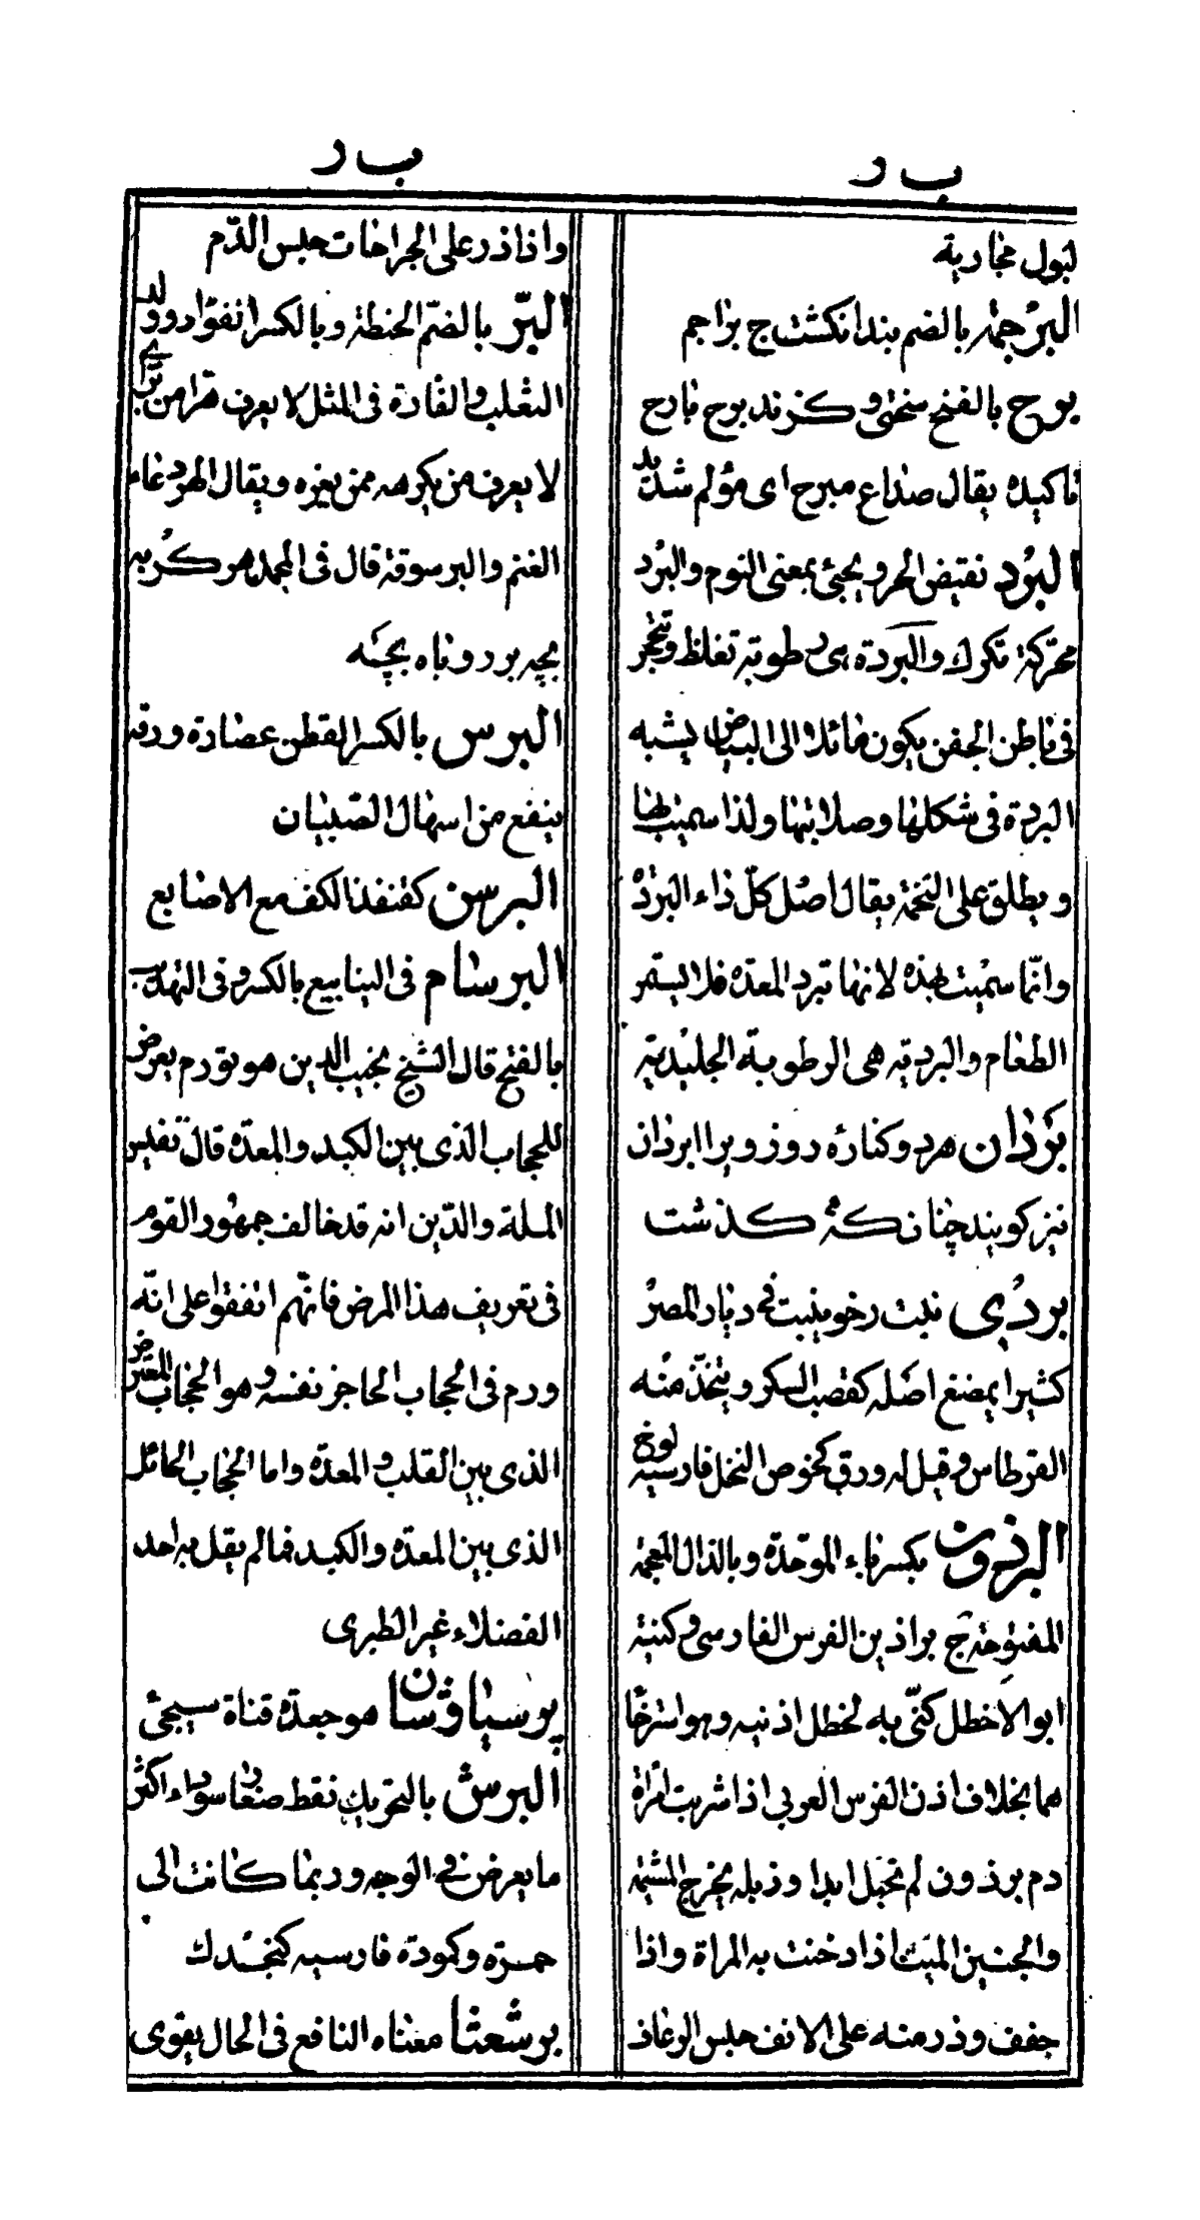 ب ر
لبول مجاریه
البرجمة بالضم بند انکشت ج براجم
برح بالفتح سختی و کزند برح بارح
تاکیده یقال صداع مبرح ای مؤلم شدید
البرد نقیض الحر و یجیئ بمعنی النوم والبرد
محرکة تکرك والبردة هی رطوبة تغلظ وتتحجر
فی باطن الجفن یکون مائلا الی البیاض یشبه
البردة فی شکلها وصلابتها ولذا سمیت بها
و یطلق علی التخمة یقال اصل کلّ داء البردة
وانّما سمّیت بهذه لانها تبرد المعدة فلا یستمر
الطعام والبردیة هی الرطوبة الجلیدیة
بردان مرد و کناره روز ویرا ابردان
نیز کویند چنان که کذشت
بردی نبت رخو ینبت فی دیار المصر
کثیرا یمضغ اصله کقصب السکر ویتخذ منه
القرطاس وقیل له ورق کخوص النخل فارسیه لوخ
البرذون بکسر باء الموحّدة وبالذال المعجمة
المفتوحة ج براذین الفرس الفارسی وکنیته
ابو الاخطل کنّی به لخطل اذنیه وهو استرخا
هما بخلاف اذن الفرس العربی اذا شربت امرأة
دم برذون لم تحبل ابدا وزبله یخرج المشیمة
والجنین المیت اذا دخنت به المراة واذا
جفف وذر منه علی الانف حبس الرعاف
ب ر
واذا ذر علی الجراحات حبس الدّم
البرّ بالضمّ الحنطة وبالکسر انفؤاد وولد
الثعلب والفارة فی المثل لا یعرف هرا من برّ ای
لا یعرف من یکرهه ممن یبره ویقال الهر دعاء
الغنم والبر سوقه قال فی المجمل هر کربه
بچه بر روباه بچه
البرس بالکسر القطن عصارة ورقه
ینفع من اسهال الصّبیان
البرسن کقنفذ الکف مع الاصابع
البرسام فی الینابیع بالکسر و فی التهذیب
بالفتح قال الشیخ نجیب الدین هو تورم یعرض
للحجاب الذی بین الکبد والمعدة قال نفیس
الملة والدّین انه قد خالف جمهور القوم
فی تعریف هذا المرض فانهم اتفقوا علی انّه
ورم فی الحجاب الحاجز نفسه وهو الحجاب المعترض
الذی بین القلب والمعدة واما الحجاب الحائل
الذی بین المعدة والکبد فمالم یقل به احد
الفضلاء غیر الطبری
پرسیاوشان هو جعدة قناة سیجئ
البرش بالتحریك نقط صغار سوداء اکثر
ما یعرض فی الوجه وربما کانت الی
حمرة وکمودة فارسیه کنجدك
برشعثا معناه النافع فی الحال یقوی